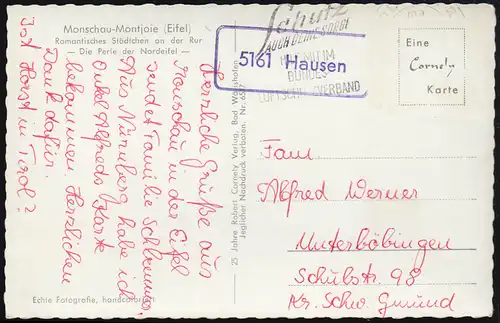 Monschau-Montjoie (Eifel)
Romantisches Städtchen an der Rur
— Die Perle der Nordeifel —
Herzliche Grüße aus
Monschau in der Eifel
sendet Familie
Aus Nürnberg habe ich
Onkel Alfreds Karte
bekommen. Herzlichen
Dank dafür.
Ist Horst in Tirol?
Echte Fotografie, handcoloriert
25 Jahre Robert Cornely Verlag, Bad
Jeglicher Nachdruck verboten. Nr.
Schutz
AUCH DEINES
IM
BUNDES
LUFTSCHUTZVERBAND
5161 Hausen
Eine
Cornely
Karte
Fam.
Alfred Werner
Unterböbingen
Schulstr. 98
Kr. Schw. Gmünd